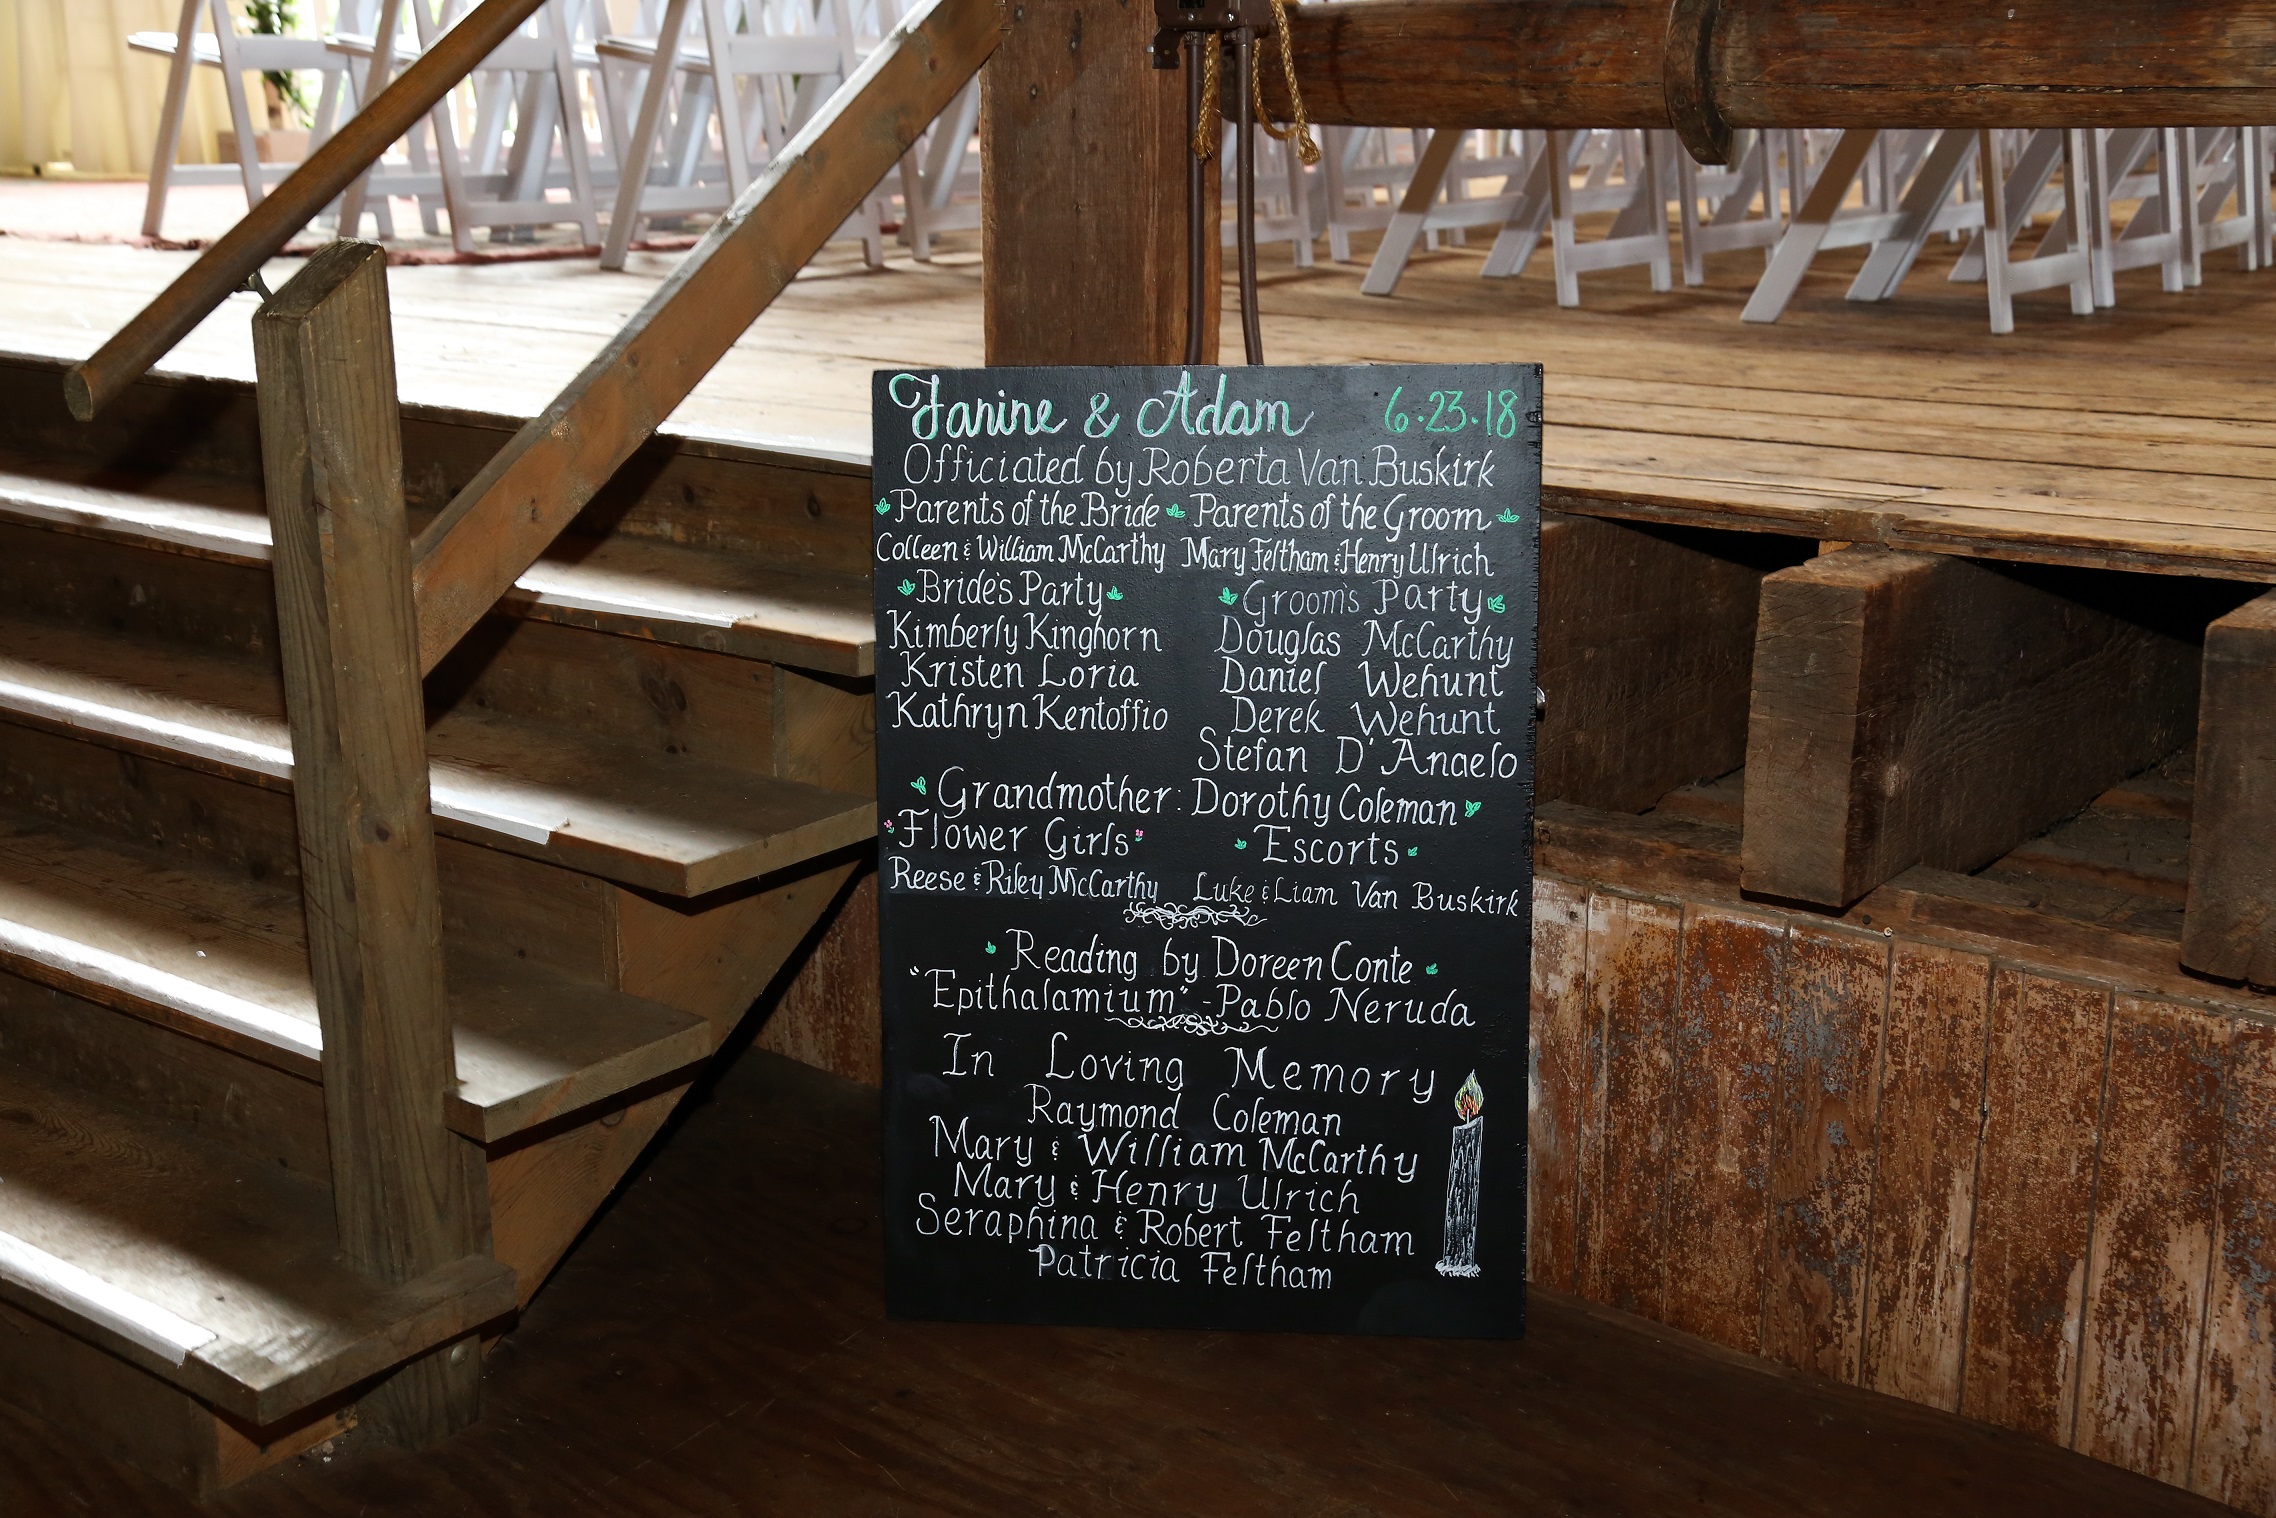 Janine & Adam 6.23.18
Officiated by Roberta Van Buskirk
Parents of the Bride Parents of the Groom
Colleen & William McCarthy Mary Feltham & Henry Ulrich
Bride's Party Groom's Party
Kimberly Kinghorn Douglas McCarthy
Kristen Loria Daniel Wehunt
Kathryn Kentoffio Derek Wehunt
Stefan D'Angelo
Grandmother: Dorothy Coleman
Flower Girls Escorts
Reese & Riley McCarthy Luke & Liam Van Buskirk
Reading by Doreen Conte
"Epithalamium" - Pablo Neruda
In Loving Memory
Raymond Coleman
Mary & William McCarthy
Mary & Henry Ulrich
Seraphina & Robert Feltham
Patricia Feltham